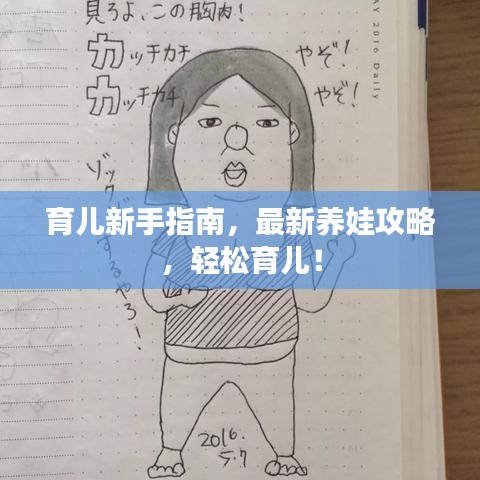 見ろよ、この胸肉!
カッチカチ やぞ!
カッチカチ やぞ!
育儿新手指南，最新养娃攻略
，轻松育儿！
2016.
5.7
AY 2016 Daily